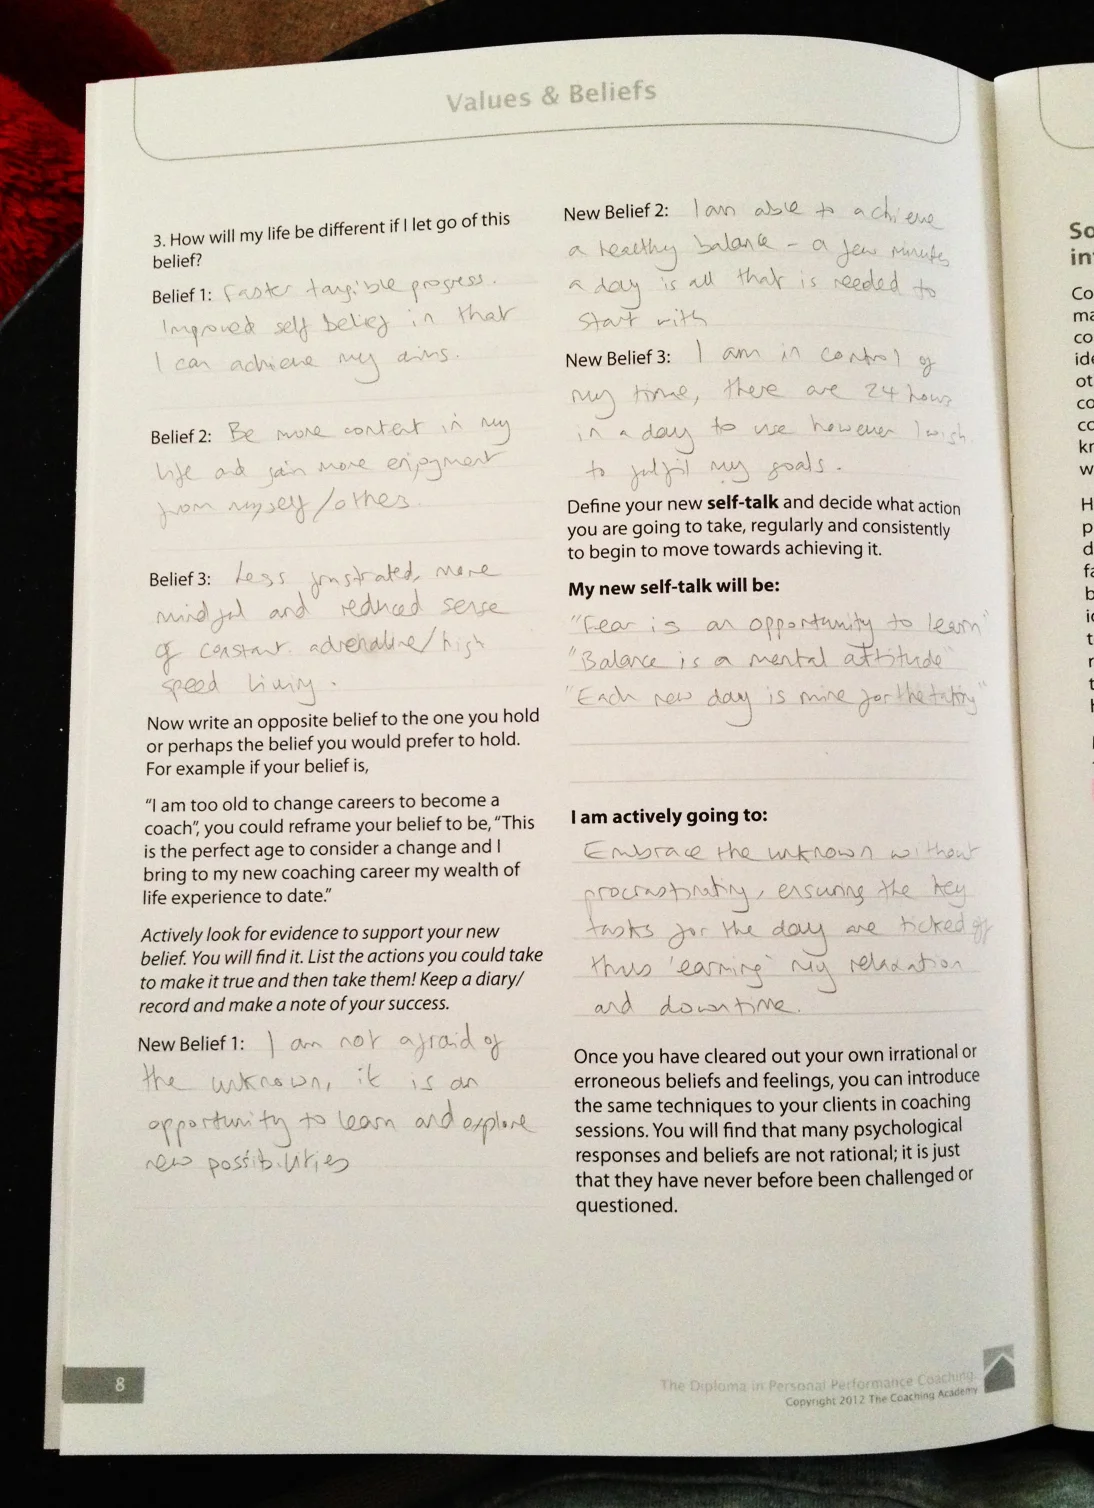 Values & Beliefs
3. How will my life be different if I let go of this
belief?
Belief 1: Faster tangible progress.
Improved self belief in that
I can achieve my aims.
Belief 2: Be more content in my
life and gain more enjoyment
from myself/others.
Belief 3: Less frustrated, more
mindful and reduced sense
of constant adrenaline/high
speed living.
Now write an opposite belief to the one you hold
or perhaps the belief you would prefer to hold.
For example if your belief is,
"I am too old to change careers to become a
coach", you could reframe your belief to be, "This
is the perfect age to consider a change and I
bring to my new coaching career my wealth of
life experience to date."
Actively look for evidence to support your new
belief. You will find it. List the actions you could take
to make it true and then take them! Keep a diary/
record and make a note of your success.
New Belief 1: I am not afraid of
the unknown, it is an
opportunity to learn and explore
new possibilities
New Belief 2: I am able to achieve
a healthy balance - a few minutes
a day is all that is needed to
start with
New Belief 3: I am in control of
my time, there are 24 hours
in a day to use however I wish
to fulfil my goals.
Define your new self-talk and decide what action
you are going to take, regularly and consistently
to begin to move towards achieving it.
My new self-talk will be:
"Fear is an opportunity to learn"
"Balance is a mental attitude"
"Each new day is mine for the taking"
I am actively going to:
Embrace the unknown without
procrastinating, ensuring the key
tasks for the day are ticked off
thus 'earning' my relaxation
and downtime.
Once you have cleared out your own irrational or
erroneous beliefs and feelings, you can introduce
the same techniques to your clients in coaching
sessions. You will find that many psychological
responses and beliefs are not rational; it is just
that they have never before been challenged or
questioned.
8
The Diploma in Personal Performance Coaching
Copyright 2012 The Coaching Academy